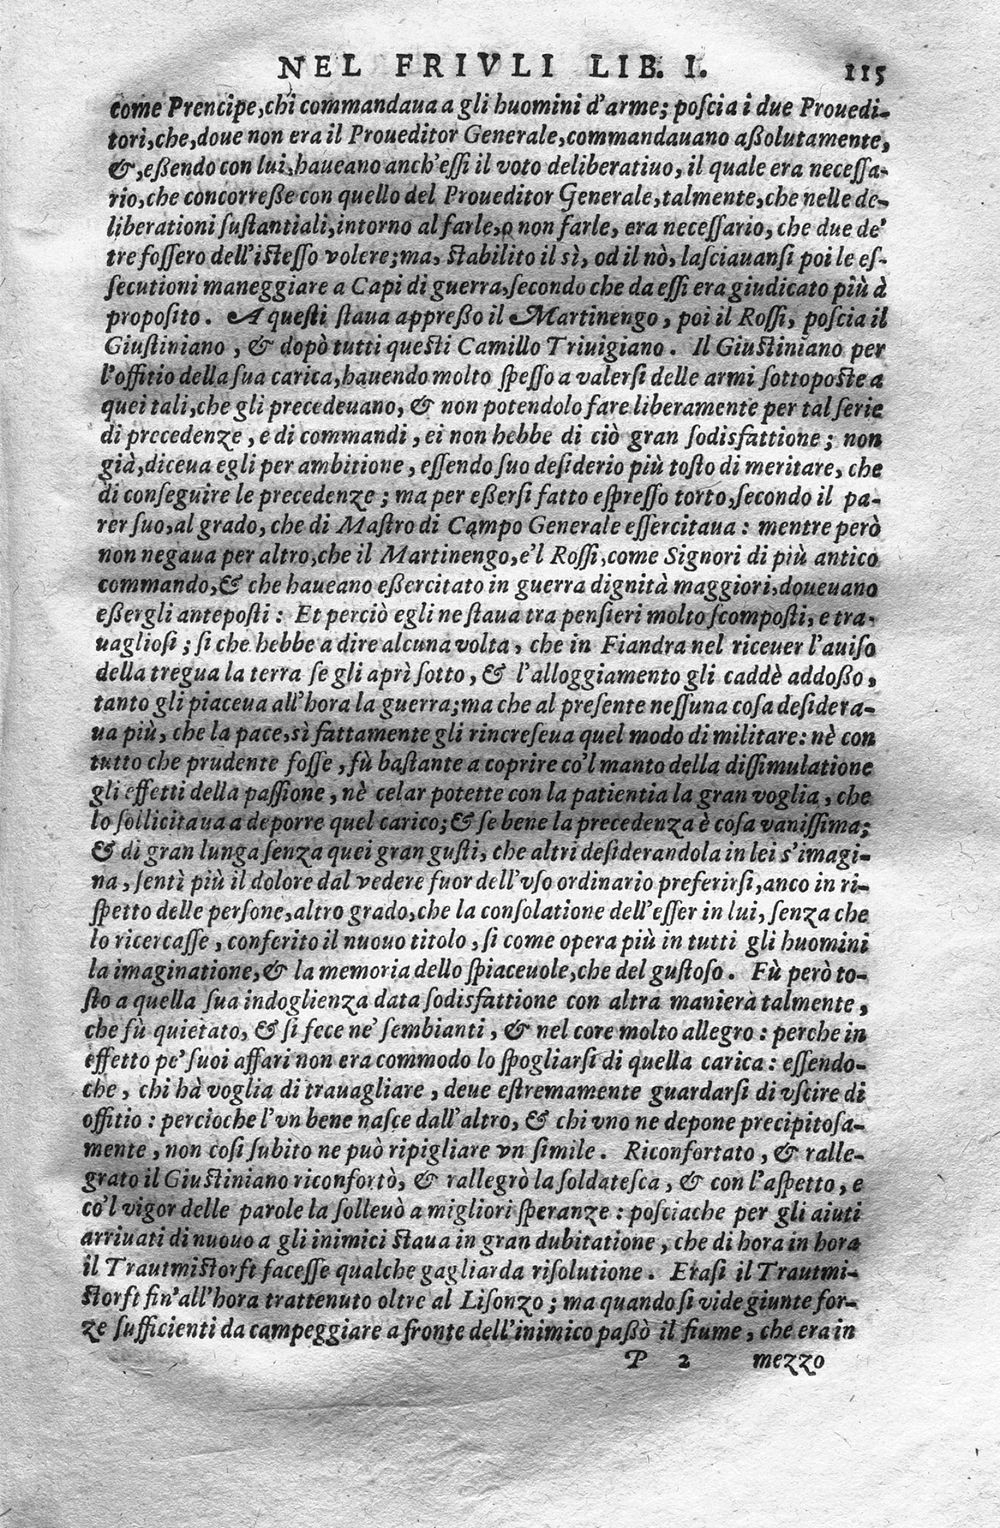 NEL FRIVLI LIB. I. 115
come Prencipe, chi commandaua a gli huomini d'arme; poſcia i due Prouedi-
tori, che, doue non era il Proueditor Generale, commandauano aßolutamente,
&, eßendo con lui, haueano anch'eſſi il voto deliberatiuo, il quale era neceſſa-
rio, che concorreße con quello del Proueditor Generale, talmente, che nelle de-
liberationi ſuſtantiali, intorno al farle, o non farle, era neceſſario, che due de'
tre foſſero dell'iſteſſo volere; ma, ſtabilito il sì, od il nò, laſciauanſi poi le eſ-
ſecutioni maneggiare a Capi di guerra, ſecondo che da eſſi era giudicato più à
propoſito. A queſti ſtaua appreßo il Martinengo, poi il Roſſi, poſcia il
Giuſtiniano, & dopò tutti queſti Camillo Triuigiano. Il Giuſtiniano per
l'offitio della ſua carica, hauendo molto ſpeſſo a valerſi delle armi ſottopoſte a
quei tali, che gli precedeuano, & non potendolo fare liberamente per tal ſerie
di precedenze, e di commandi, ei non hebbe di ciò gran ſodisfattione; non
già, diceua egli per ambitione, eſſendo ſuo deſiderio più toſto di meritare, che
di conſeguire le precedenze; ma per eßerſi fatto eſpreſſo torto, ſecondo il pa-
rer ſuo, al grado, che di Maſtro di Campo Generale eſſercitaua: mentre però
non negaua per altro, che il Martinengo, e'l Roſſi, come Signori di più antico
commando, & che haueano eßercitato in guerra dignità maggiori, doueuano
eßergli antepoſti: Et perciò egli ne ſtaua tra penſieri molto ſcompoſti, e tra-
uaglioſi; ſi che hebbe a dire alcuna volta, che in Fiandra nel riceuer l'auiſo
della tregua la terra ſe gli aprì ſotto, & l'alloggiamento gli caddè addoßo,
tanto gli piaceua all'hora la guerra; ma che al preſente neſſuna coſa deſidera-
ua più, che la pace, sì fattamente gli rincreſeua quel modo di militare: nè con
tutto che prudente foſſe, fù baſtante a coprire co'l manto della diſſimulatione
gli effetti della paſſione, nè celar potette con la patientia la gran voglia, che
lo ſollicitaua a deporre quel carico; & ſe bene la precedenza è coſa vaniſſima;
& di gran lunga ſenza quei gran guſti, che altri deſiderandola in lei s'imagi-
na, ſentì più il dolore dal vedere fuor dell'vſo ordinario preferirſi, anco in ri-
ſpetto delle perſone, altro grado, che la conſolatione dell'eſſer in lui, ſenza che
lo ricercaſſe, conferito il nuouo titolo, ſi come opera più in tutti gli huomini
la imaginatione, & la memoria dello ſpiaceuole, che del guſtoſo. Fù però to-
ſto a quella ſua indoglienza data ſodisfattione con altra maniera talmente,
che fù quietato, & ſi fece ne' ſembianti, & nel core molto allegro: perche in
effetto pe' ſuoi affari non era commodo lo ſpogliarſi di quella carica: eſſendo-
che, chi hà voglia di trauagliare, deue eſtremamente guardarſi di vſcire di
offitio: percioche l'vn bene naſce dall'altro, & chi vno ne depone precipitoſa-
mente, non coſi ſubito ne può ripigliare vn ſimile. Riconfortato, & ralle-
grato il Giuſtiniano riconfortò, & rallegrò la ſoldateſca, & con l'aſpetto, e
co'l vigor delle parole la ſolleuò a migliori ſperanze: poſciache per gli aiuti
arriuati di nuouo a gli inimici ſtaua in gran dubitatione, che di hora in hora
il Trautmiſtorft faceſſe qualche gagliarda riſolutione. Eraſi il Trautmi-
ſtorft fin'all'hora trattenuto oltre al Liſonzo; ma quando ſi vide giunte for-
ze ſufficienti da campeggiare a fronte dell'inimico paßò il fiume, che era in
P 2 mezzo